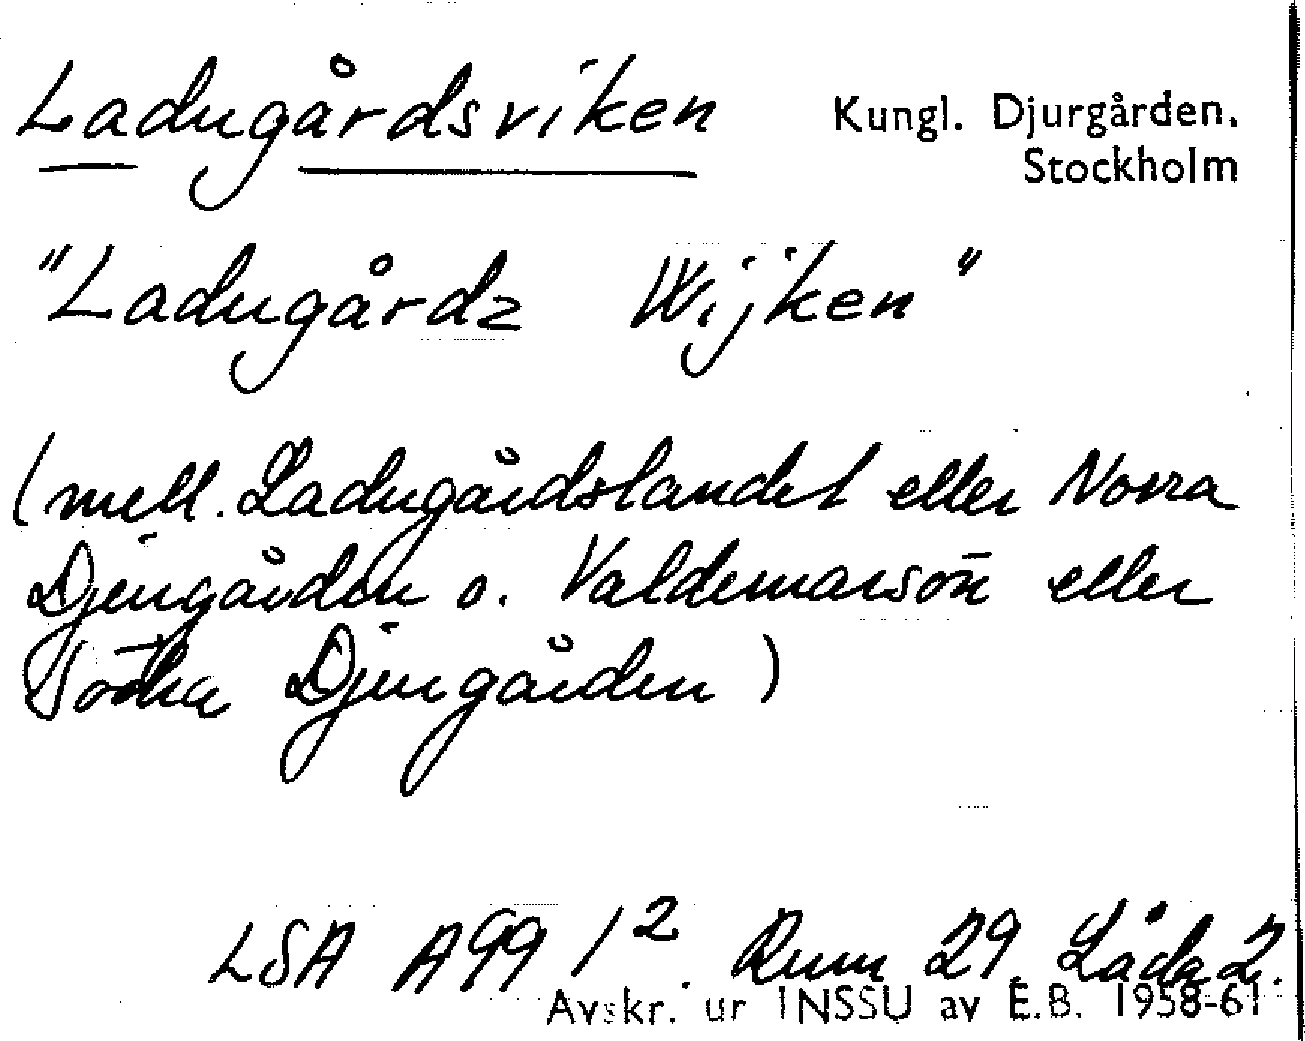 Ladugårdsviken
Kungl. Djurgården.
Stockholm
"Ladugårdz Wijken"
(mell. Ladugårdslandet eller Norra
Djurgården o. Valdemarsön eller
Södra Djurgården)
LSA A99 1². Rum 29. Låda 2.
Avskr. ur INSSU av E.B. 1958-61